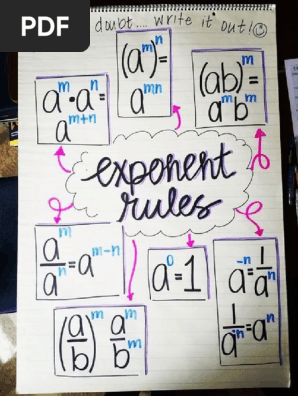 PDF
doubt.... write it out!
(aᵐ)ⁿ=
aᵐⁿ
aᵐ•aⁿ=
aᵐ⁺ⁿ
(ab)ᵐ=
aᵐbᵐ
exponent
rules
aᵐ/aⁿ=aᵐ⁻ⁿ
a⁰=1
a⁻ⁿ=1/aⁿ
1/a⁻ⁿ=aⁿ
(a/b)ᵐ aᵐ/bᵐ